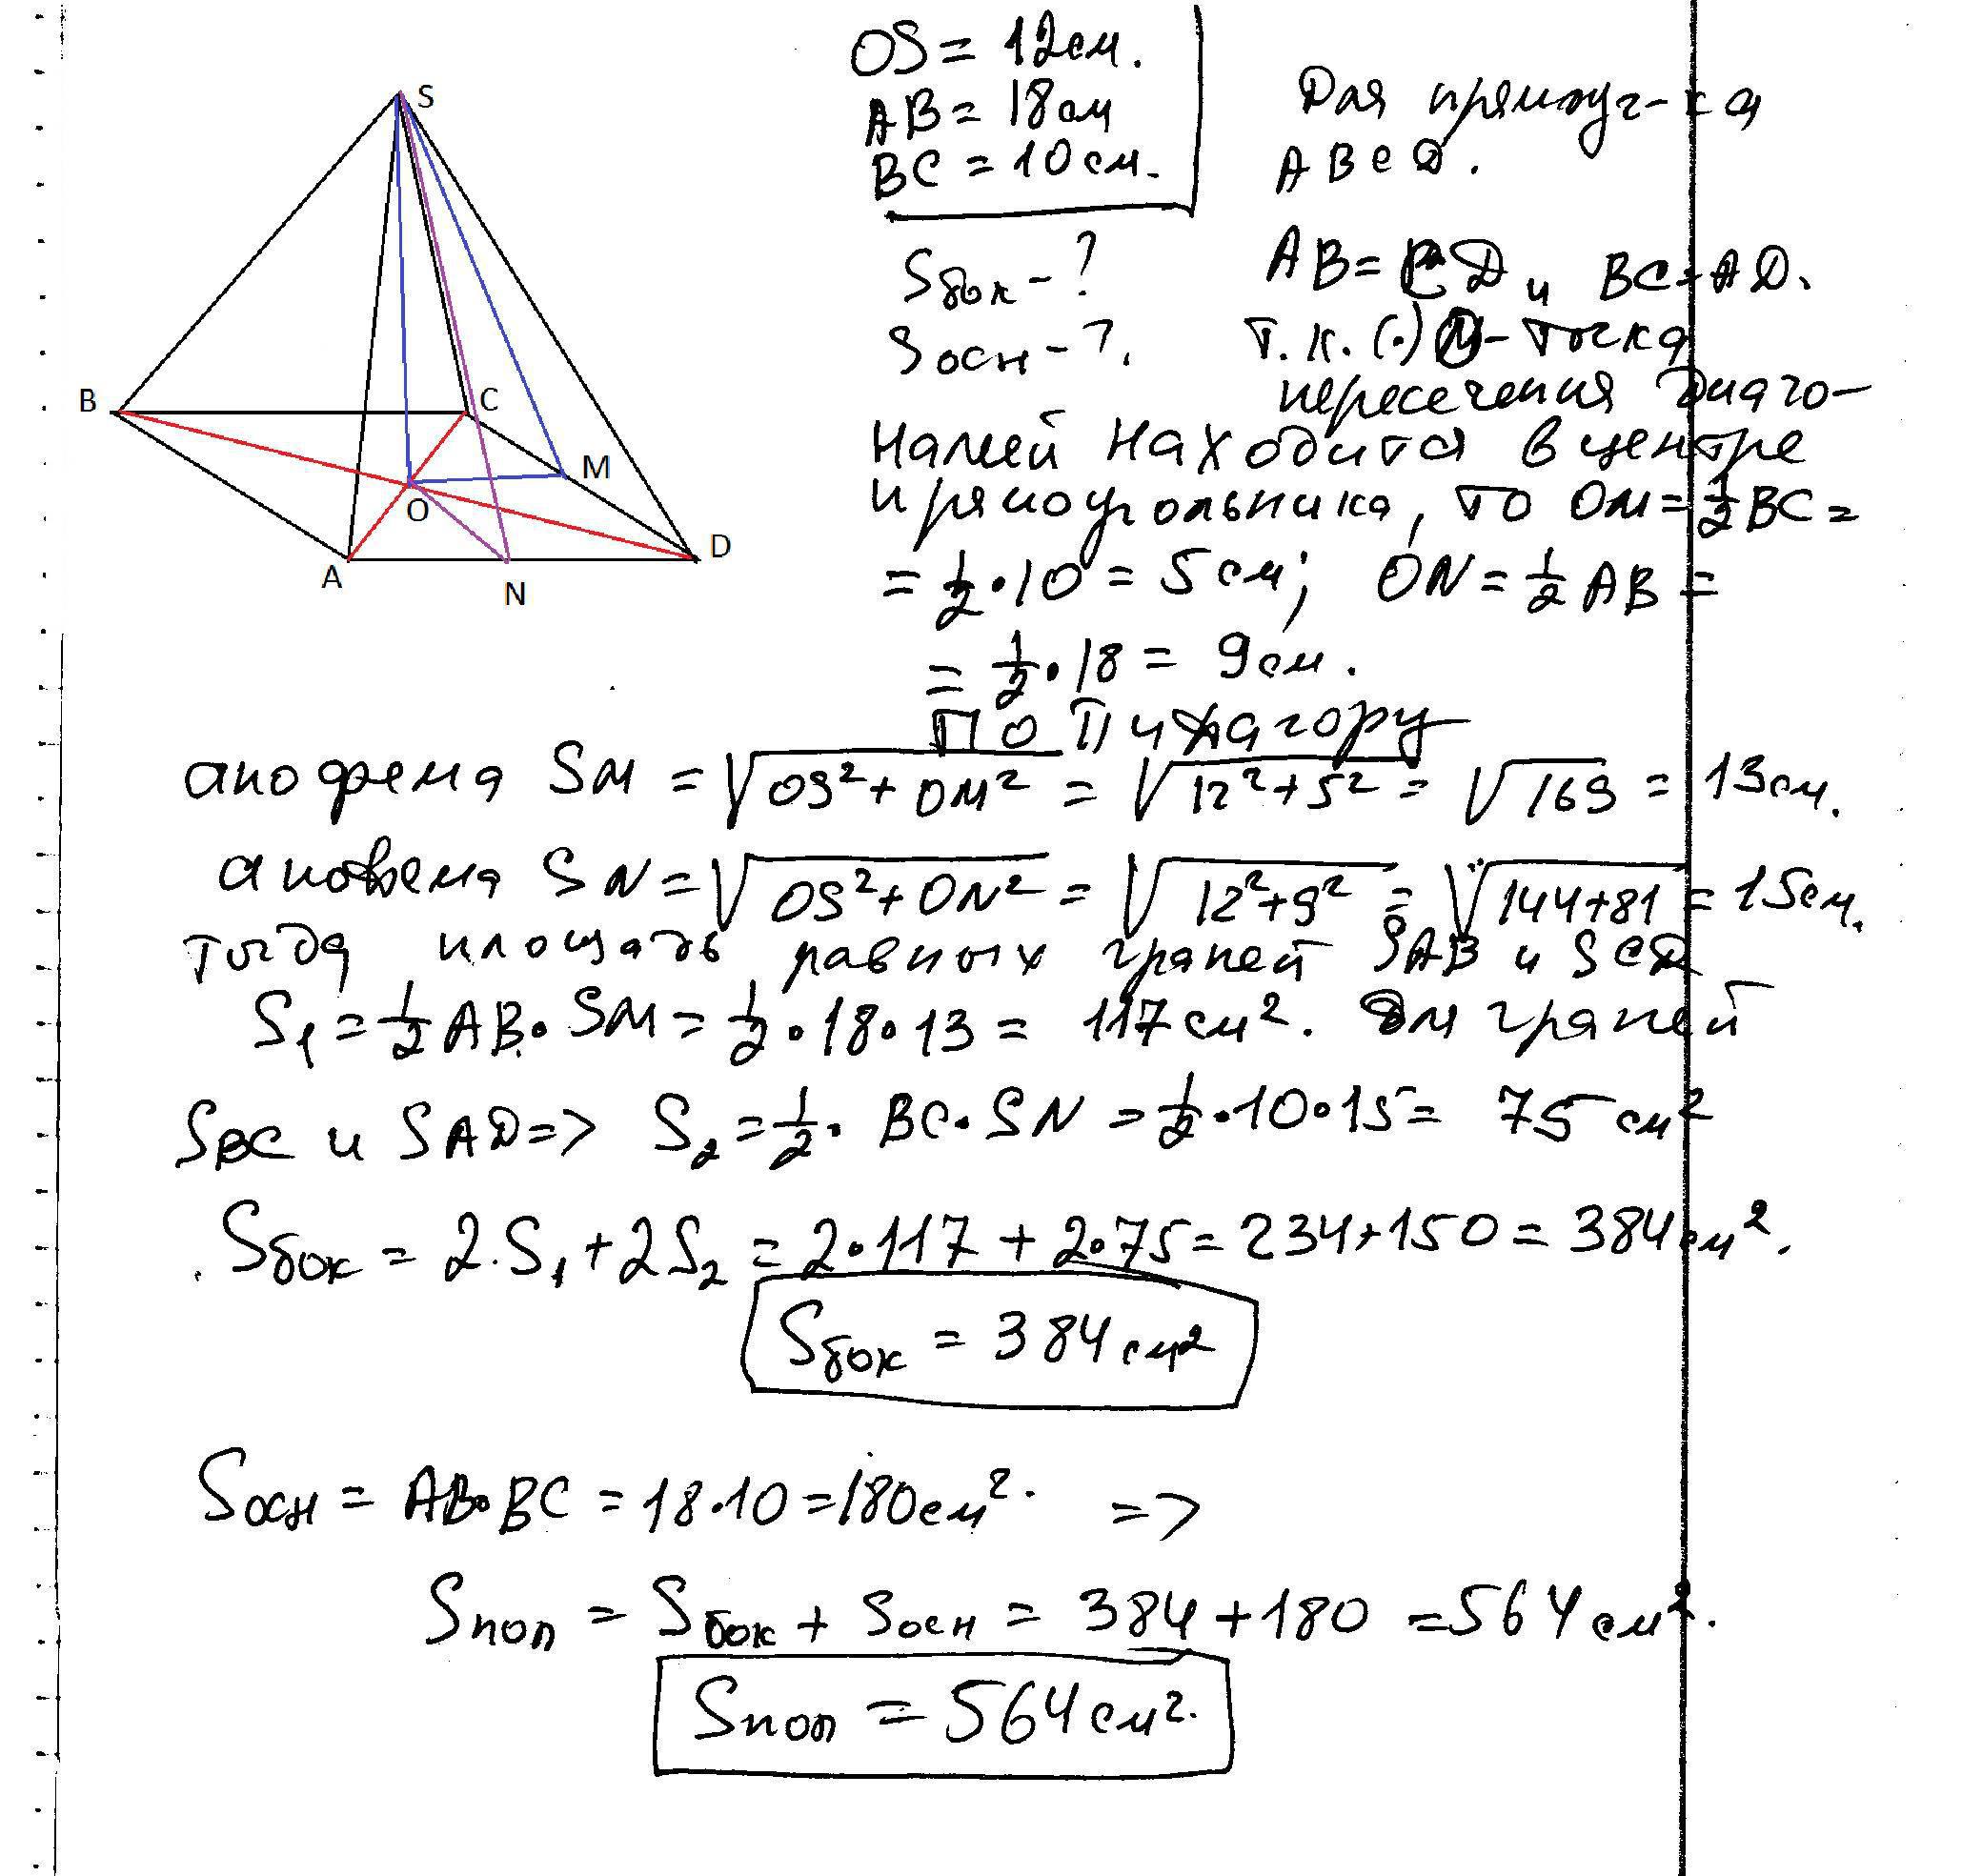 S
B
C
M
O
A
N
D
OS = 12 см.
AB = 18 см
BC = 10 см.
Sбок - ?
Sосн - ?.
Для прямоуг-ка
ABCD.
AB = CD и BC = AD.
т.к. (·) O - точка
пересечения диаго-
налей находится в центре
прямоугольника, то OM = 1/2 BC =
= 1/2 · 10 = 5 см; ON = 1/2 AB =
= 1/2 · 18 = 9 см.
По Пифагору
апофема SM = √(OS² + OM²) = √(12² + 5²) = √169 = 13 см.
апофема SN = √(OS² + ON²) = √(12² + 9²) = √(144 + 81) = 15 см.
тогда площадь равных граней SAB и SCD
S₁ = 1/2 AB · SM = 1/2 · 18 · 13 = 117 см². Для граней
SBC и SAD => S₂ = 1/2 · BC · SN = 1/2 · 10 · 15 = 75 см²
Sбок = 2 · S₁ + 2S₂ = 2 · 117 + 2 · 75 = 234 + 150 = 384 см².
Sбок = 384 см²
Sосн = AB · BC = 18 · 10 = 180 см². =>
Sпол = Sбок + Sосн = 384 + 180 = 564 см².
Sпол = 564 см².